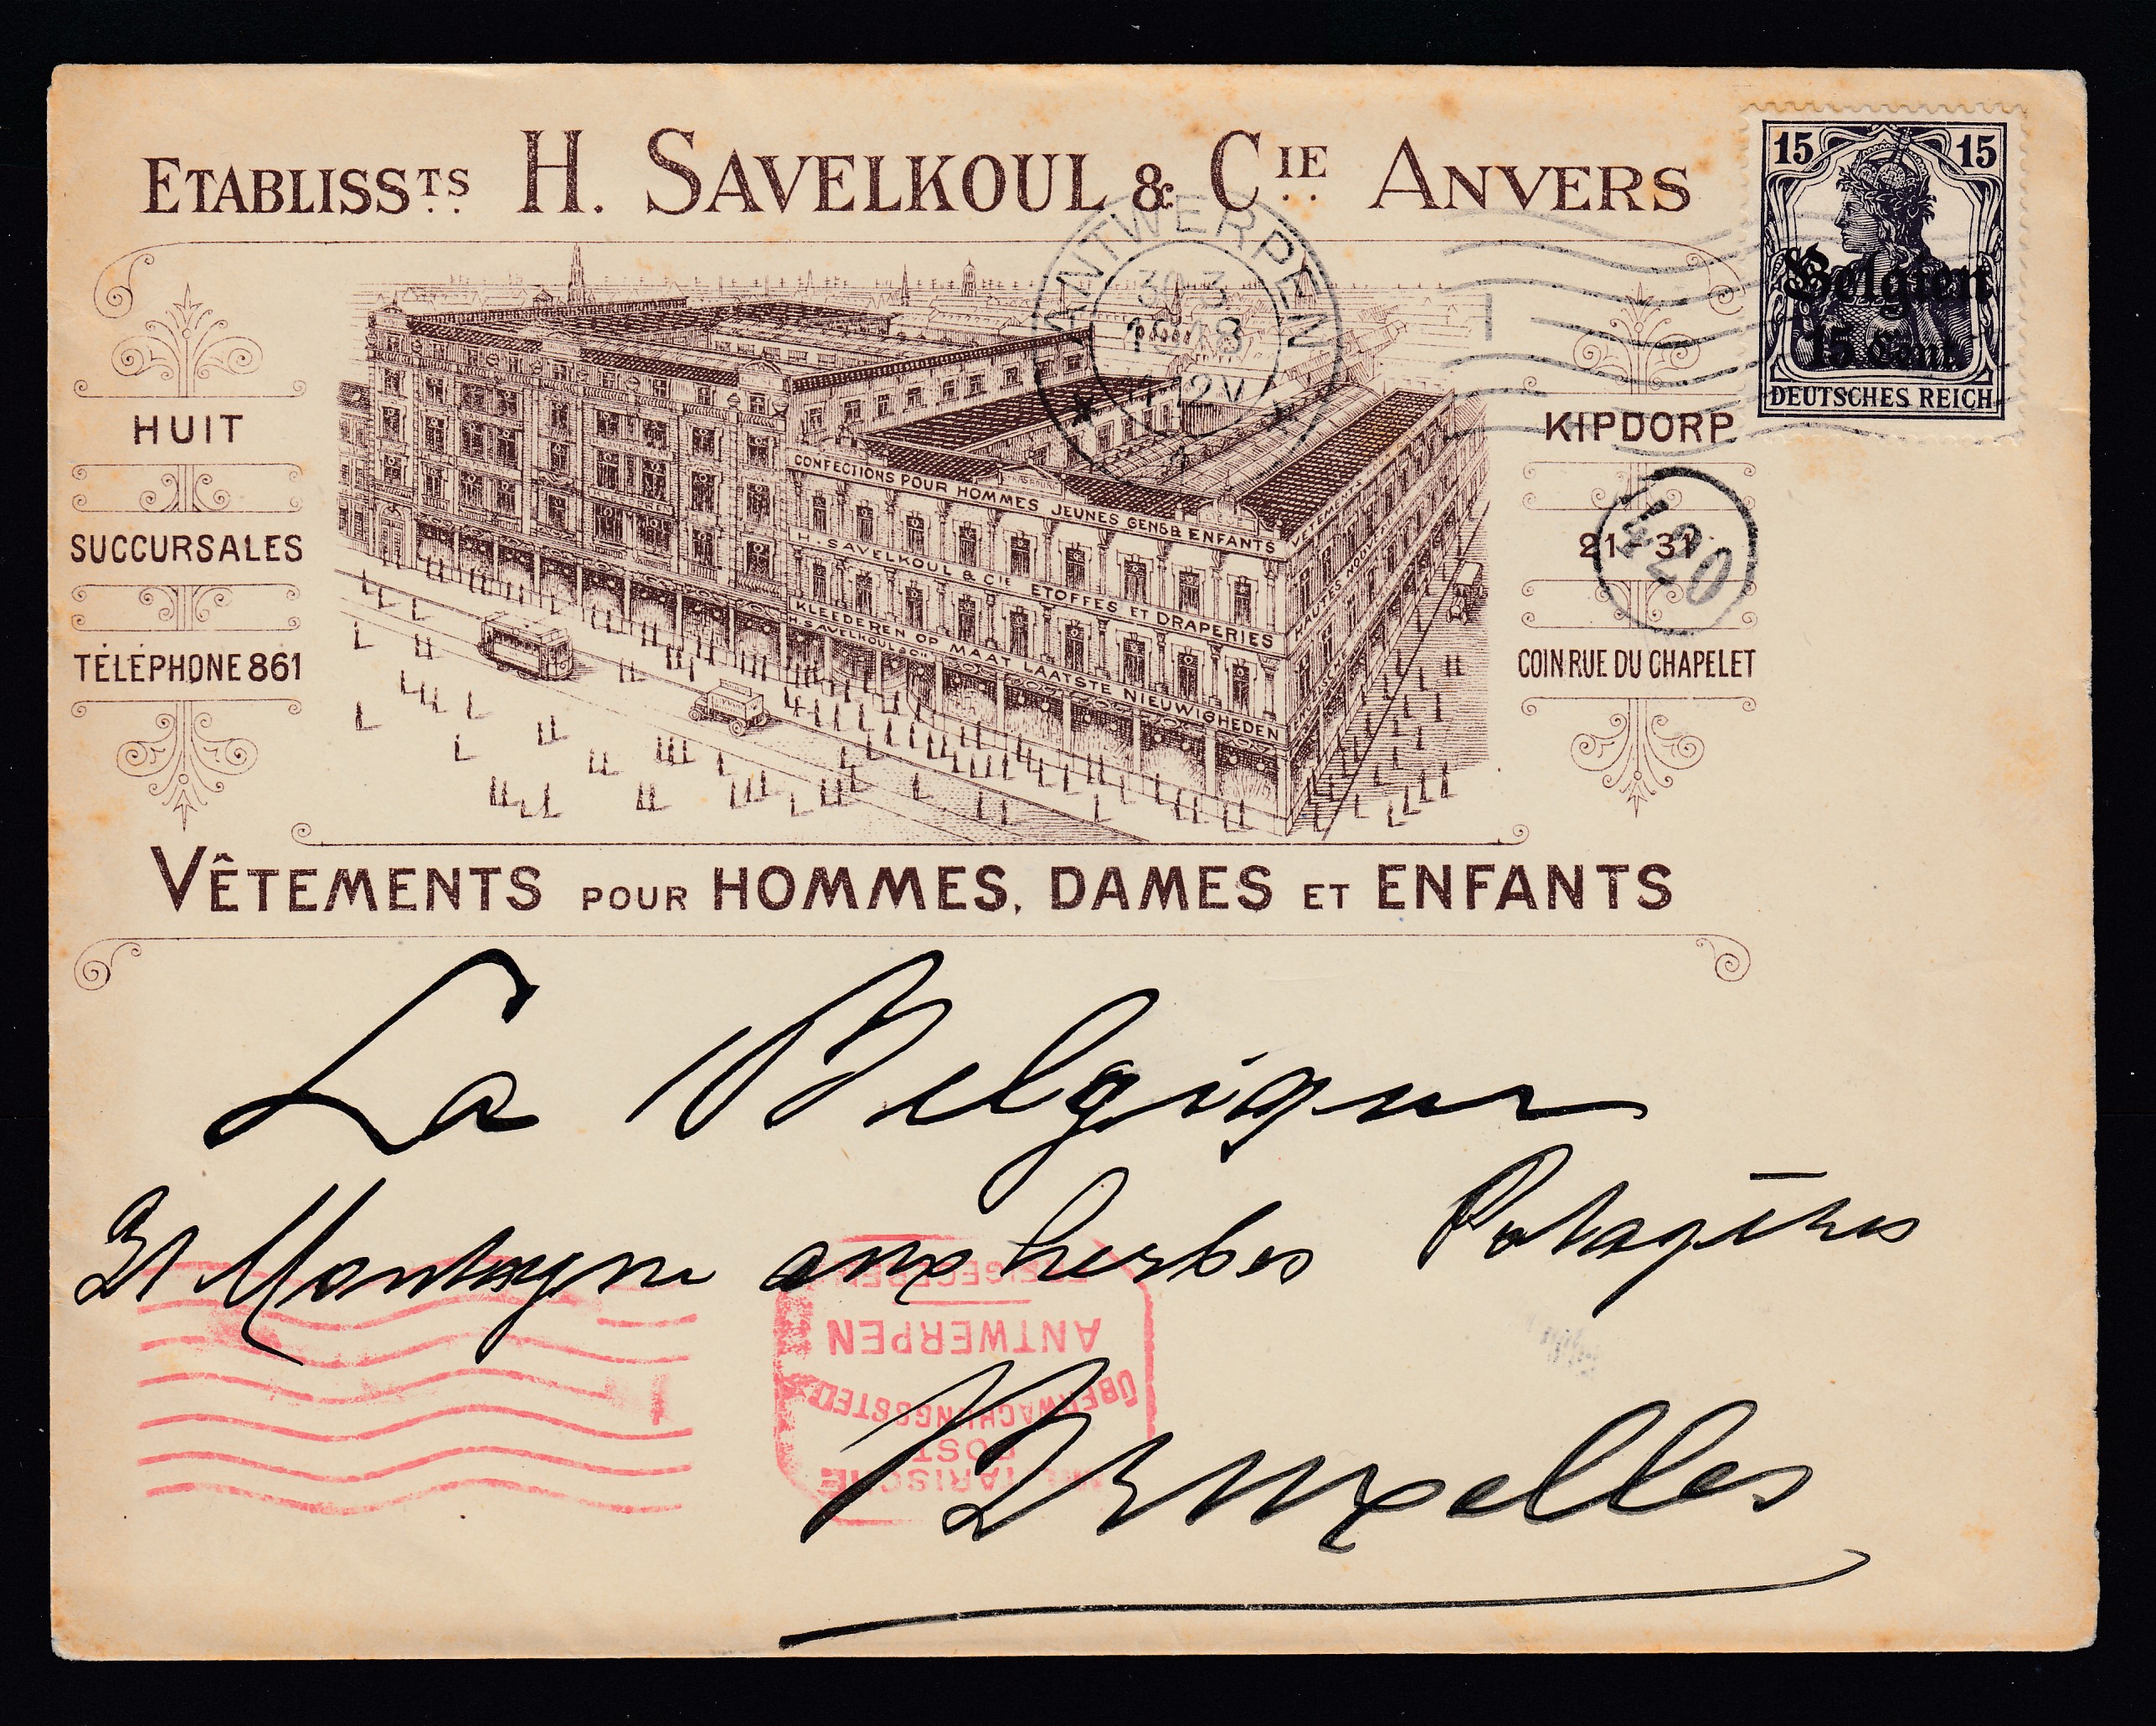 ETABLISSTS H. SAVELKOUL & CIE ANVERS
15 15
Belgien
15 Cent.
DEUTSCHES REICH
ANTWERPEN
30 3
1918
12V
HUIT
SUCCURSALES
TÉLÉPHONE 861
CONFECTIONS POUR HOMMES JEUNES GENS & ENFANTS
H. SAVELKOUL & CIE ETOFFES ET DRAPERIES
KLEEDEREN OP MAAT LAATSTE NIEUWIGHEDEN
H. SAVELKOUL & CIE
HAUTES
KIPDORP
21-31
420
COIN RUE DU CHAPELET
VÊTEMENTS POUR HOMMES, DAMES ET ENFANTS
La Belgique
31 Montagne aux herbes Potagères
Bruxelles
MILITARISCHE
POST
ÜBERWACHUNGSSTELLE
ANTWERPEN
FREIGEGEBEN